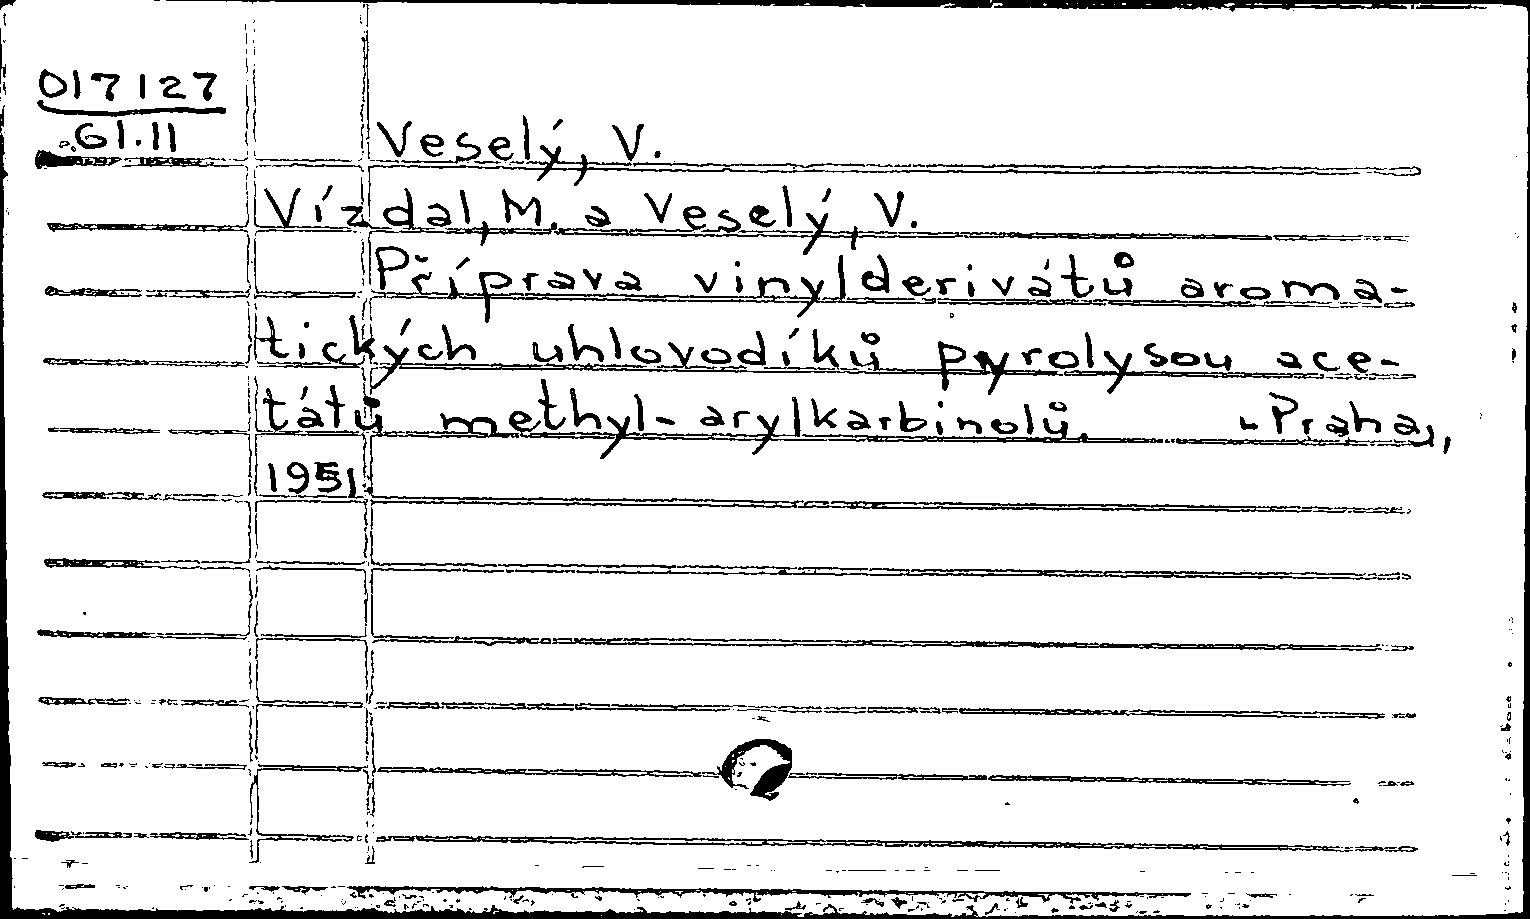 017127
G1.11
Veselý, V.
Vízdal, M. a Veselý, V.
Příprava vinylderivátů aroma-
tických uhlovodíků pyrolysou ace-
tátů methyl-arylkarbinolů. - Praha,
1951.